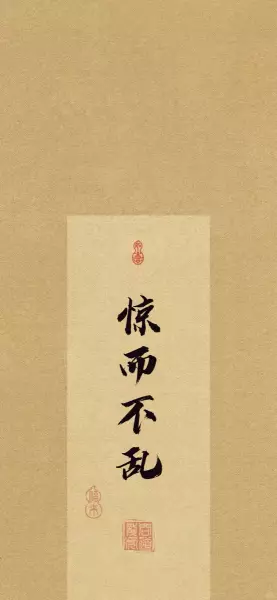 惊而不乱